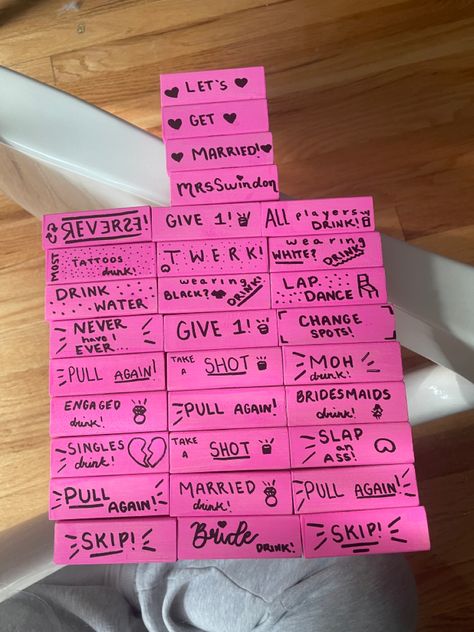 LET'S
GET
MARRIED!
MRS SWINDON
REVERSE!
GIVE 1!
ALL players DRINK!
MOST TATTOOS drink!
TWERK!
wearing WHITE? DRINK!
DRINK WATER
wearing BLACK? DRINK!
LAP DANCE
NEVER have I EVER...
GIVE 1!
CHANGE SPOTS!
PULL AGAIN!
TAKE A SHOT
MOH drink!
ENGAGED drink!
PULL AGAIN!
BRIDESMAIDS drink!
SINGLES drink!
TAKE A SHOT
SLAP an ASS!
PULL AGAIN!
MARRIED drink!
PULL AGAIN!
SKIP!
Bride DRINK!
SKIP!